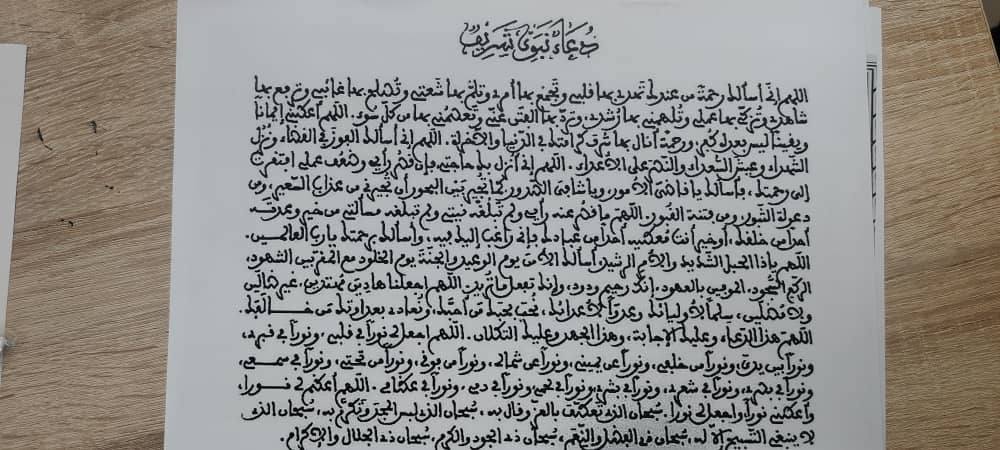 دُعَاءٌ نَبَوِيٌّ شَرِيفٌ
اللهم إني أسألك رحمة من عندك تهدي بها قلبي وتجمع بها أمري وتلم بها شعثي وتصلح بها غائبي وترفع بها
شاهدي وتزكي بها عملي وتلهمني بها رشدي، وترد بها ألفتي وتعصمني بها من كل سوء. اللهم أعطني إيمانا
ويقينا ليس بعده كفر، ورحمة أنال بها شرف كرامتك في الدنيا والآخرة. اللهم إني أسألك الفوز في القضاء، ونزل
الشهداء وعيش السعداء والنصر على الأعداء. اللهم إني أنزل بك حاجتي فإن قصر رأيي وضعف عملي افتقرت
إلى رحمتك، فأسألك يا قاضي الأمور، ويا شافي الصدور، كما تجير بين البحور أن تجيرني من عذاب السعير، ومن
دعوة الثبور، ومن فتنة القبور. اللهم ما قصر عنه رأيي ولم تبلغه نيتي ولم تبلغه مسألتي من خير وعدته
أحدا من خلقك، أو خير أنت معطيه أحدا من عبادك فإني راغب إليك فيه، وأسألك برحمتك يا رب العالمين.
اللهم يا ذا الحبل الشديد والأمر الرشيد أسألك الأمن يوم الوعيد والجنة يوم الخلود مع المقربين الشهود،
الركع السجود، الموفين بالعهود، إنك رحيم ودود، وإنك تفعل ما تريد. اللهم اجعلنا هادين مهتدين، غير ضالين
ولا مضلين، سلما لأوليائك وعدوا لأعدائك، نحب بحبك من أحبك، ونعادي بعداوتك من خالفك.
اللهم هذا الدعاء وعليك الإجابة، وهذا الجهد وعليك التكلان. اللهم اجعل لي نورا في قلبي، ونورا في قبري،
ونورا بين يدي، ونورا من خلفي، ونورا عن يميني، ونورا عن شمالي، ونورا من فوقي، ونورا من تحتي، ونورا في سمعي،
ونورا في بصري، ونورا في شعري، ونورا في بشري، ونورا في لحمي، ونورا في دمي، ونورا في عظامي. اللهم أعظم لي نورا،
وأعطني نورا، واجعل لي نورا. سبحان الذي تعطف بالعز وقال به، سبحان الذي لبس المجد وتكرم به، سبحان الذي
لا ينبغي التسبيح إلا له، سبحان ذي الفضل والنعم، سبحان ذي الجود والكرم، سبحان ذي الجلال والإكرام.